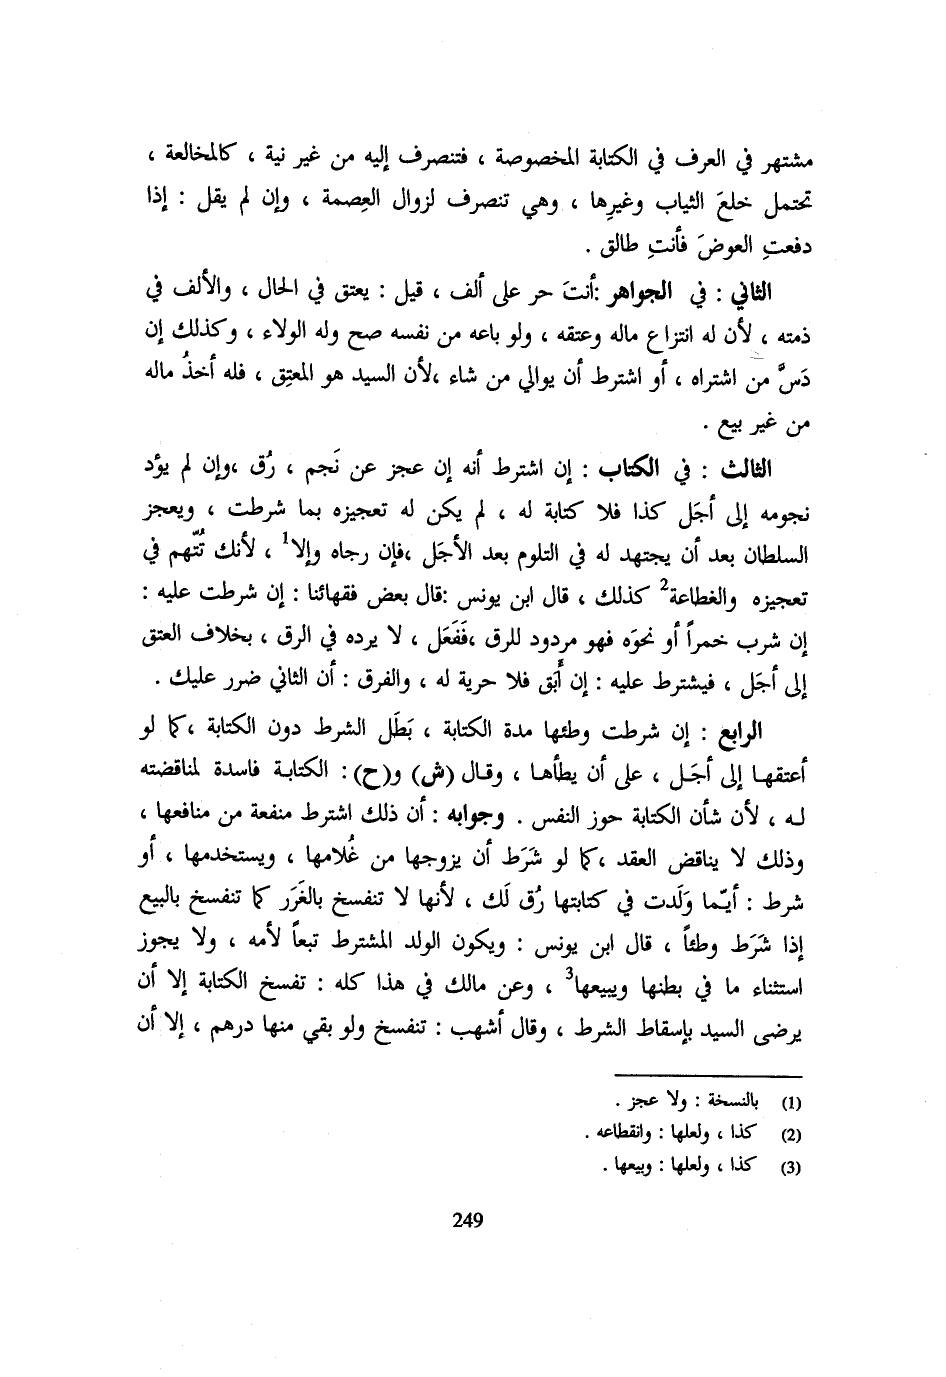 مشتهر في العرف في الكتابة المخصوصة ، فتنصرف إليه من غير نية ، كالمخالعة ،
تحتمل خلعَ الثياب وغيرِها ، وهي تنصرف لزوال العِصمة ، وإن لم يقل : إذا
دفعتِ العوضَ فأنتِ طالق .
الثاني : في الجواهر :أنتَ حر على ألف ، قيل : يعتق في الحال ، والألف في
ذمته ، لأن له انتزاع ماله وعتقه ، ولو باعه من نفسه صح وله الولاء ، وكذلك إن
دَسَّ من اشتراه ، أو اشترط أن يوالي من شاء ،لأن السيد هو المعتِق ، فله أخذُ ماله
من غير بيع .
الثالث : في الكتاب : إن اشترط أنه إن عجز عن نَجم ، رُق ،وإن لم يؤد
نجومه إلى أجَل كذا فلا كتابة له ، لم يكن له تعجيزه بما شرطت ، ويعجز
السلطان بعد أن يجتهد له في التلوم بعد الأجَل ،فإن رجاه وإلا1 ، لأنك تُتَّهم في
تعجيزه والغطاعة2 كذلك ، قال ابن يونس :قال بعض فقهائنا : إن شرطت عليه :
إن شرب خمراً أو نحوَه فهو مردود للرق ،فَفَعَل ، لا يرده في الرق ، بخلاف العتق
إلى أجَل ، فيشترط عليه : إن أَبَق فلا حرية له ، والفرق : أن الثاني ضرر عليك .
الرابع : إن شرطت وطئها مدة الكتابة ، بَطَل الشرط دون الكتابة ،كما لو
أعتقها إلى أجَل ، على أن يطأها ، وقال (ش) و(ح) : الكتابة فاسدة لمناقضته
له ، لأن شأن الكتابة حوز النفس . وجوابه : أن ذلك اشترط منفعة من منافعها ،
وذلك لا يناقض العقد ،كما لو شَرَط أن يزوجها من غُلامها ، ويستخدمها ، أو
شرط : أيّما وَلَدت في كتابتها رُق لَك ، لأنها لا تنفسخ بالغَرَر كما تنفسخ بالبيع
إذا شَرَط وطئاً ، قال ابن يونس : ويكون الولد المشترط تبعاً لأمه ، ولا يجوز
استثناء ما في بطنها ويبيعها3 ، وعن مالك في هذا كله : تفسخ الكتابة إلا أن
يرضى السيد بإسقاط الشرط ، وقال أشهب : تنفسخ ولو بقي منها درهم ، إلا أن
(1) بالنسخة : ولا عجز .
(2) كذا ، ولعلها : وانقطاعه .
(3) كذا ، ولعلها : وبيعها .
249